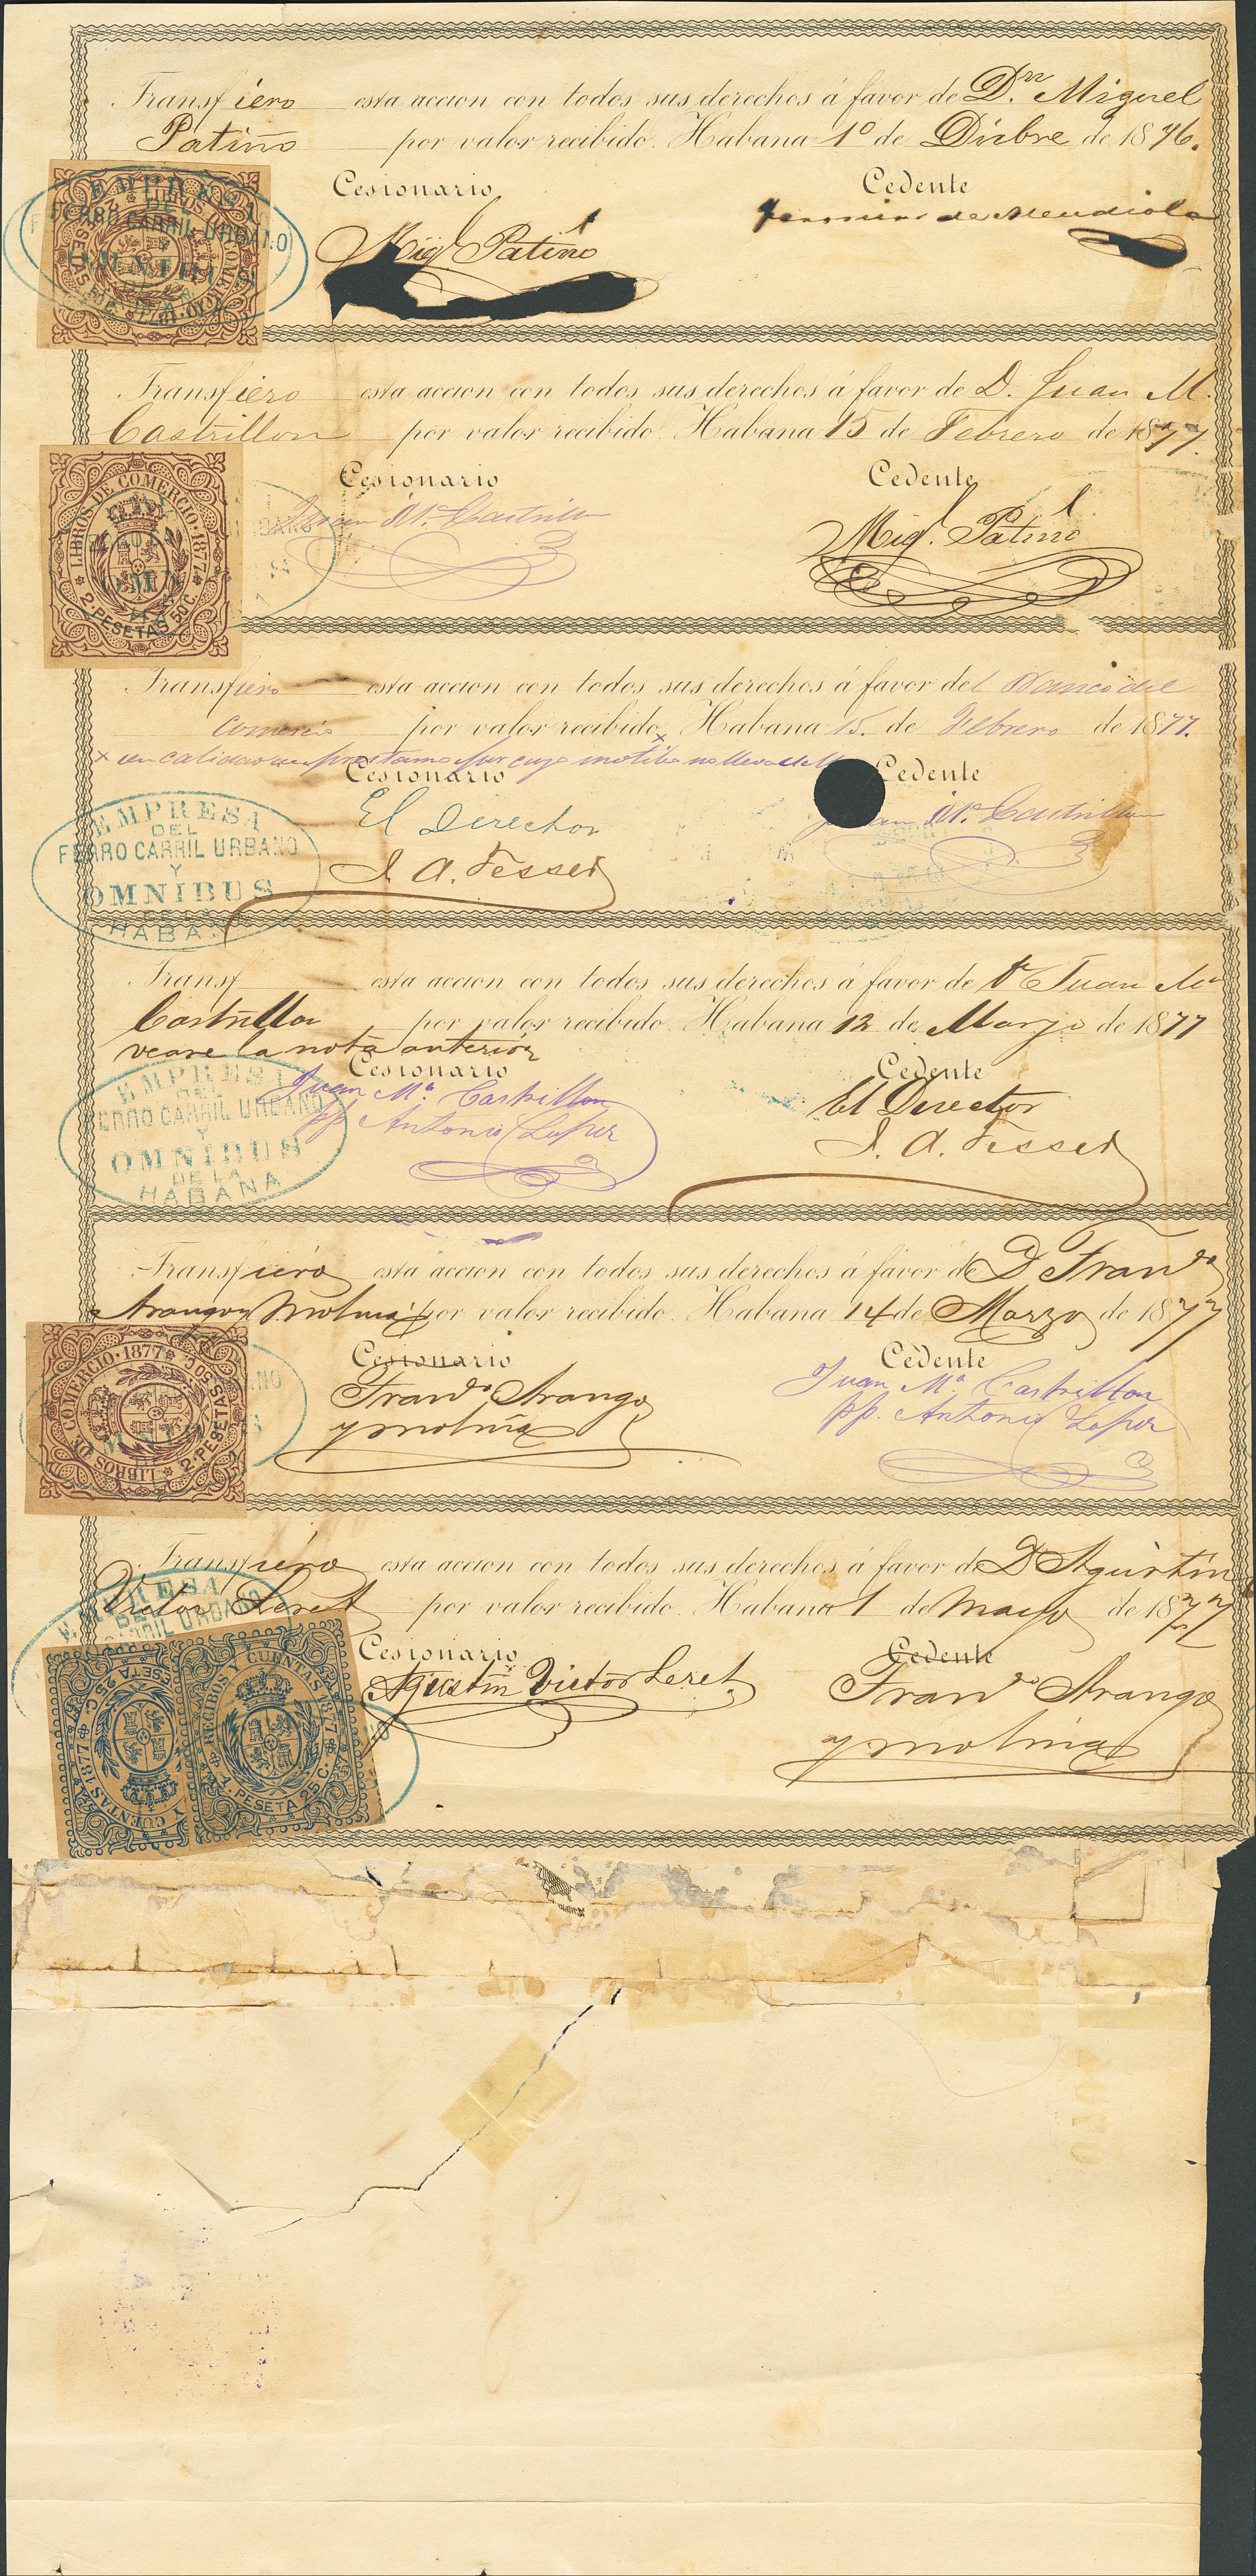 Transfiero esta accion con todos sus derechos á favor de Dn. Miguel
Patiño por valor recibido. Habana 1º de Dicbre de 1876.
Cesionario Cedente
Migl Patiño
de Mendiola
EMPRESA
DEL
FERRO CARRIL URBANO
Y
OMNIBUS
LIBROS DE COMERCIO
PESETAS 50 C.
Transfiero esta accion con todos sus derechos á favor de D. Juan M.
Castrillon por valor recibido. Habana 15 de Febrero de 1877.
Cesionario Cedente
Juan Mª. Castrillon
Migl. Patiño
LIBROS DE COMERCIO·1877
2·PESETAS 50 C.
Transfiero esta accion con todos sus derechos á favor del Banco del
Comercio por valor recibido x Habana 15. de Febrero de 1877.
x en calidad de prestamo por cuyo motibo no lleva sello
Cesionario Cedente
El Director
J. A. Fesser
Juan Mª. Castrillon
EMPRESA
DEL
FERRO CARRIL URBANO
Y
OMNIBUS
DE LA
HABANA
Transf esta accion con todos sus derechos á favor de Dn Juan Ma
Castrillon por valor recibido. Habana 12 de Marzo de 1877
vease la nota anterior
Cesionario Cedente
Juan Mª. Castrillon
pp. Antonio Lopez
El Director
J. A. Fesser
EMPRESA
DEL
FERRO CARRIL URBANO
Y
OMNIBUS
DE LA
HABANA
Transfiero esta accion con todos sus derechos á favor de D Francº
Arango y Molina por valor recibido. Habana 14 de Marzo de 1877
Cesionario Cedente
Francº Arango
y Molina
Juan Mª. Castrillon
pp. Antonio Lopez
LIBROS DE COMERCIO·1877
2·PESETAS 50 C.
Transfiero esta accion con todos sus derechos á favor de D Agustin
Victor Leret por valor recibido. Habana 1 de Mayo de 1877
Cesionario Cedente
Agustin Victor Leret
Francº Arango
y Molina
EMPRESA
DEL
CARRIL URBANO
Y CUENTAS 1877
PESETA 25 C.
RECIBOS Y CUENTAS 1877
1·PESETA 25 C.